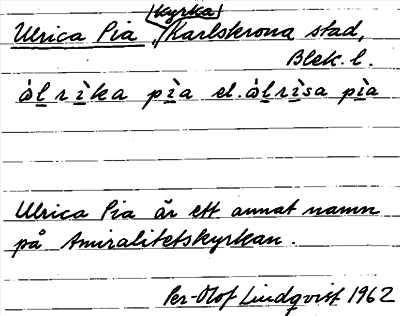 kyrka
Ulrica Pia, Karlskrona stad,
Blek. l.
ùl̠rì̠ka pì̠a el. ùl̠rì̠sa pì̠a
Ulrica Pia är ett annat namn
på Amiralitetskyrkan.
Per-Olof Lindqvist 1962